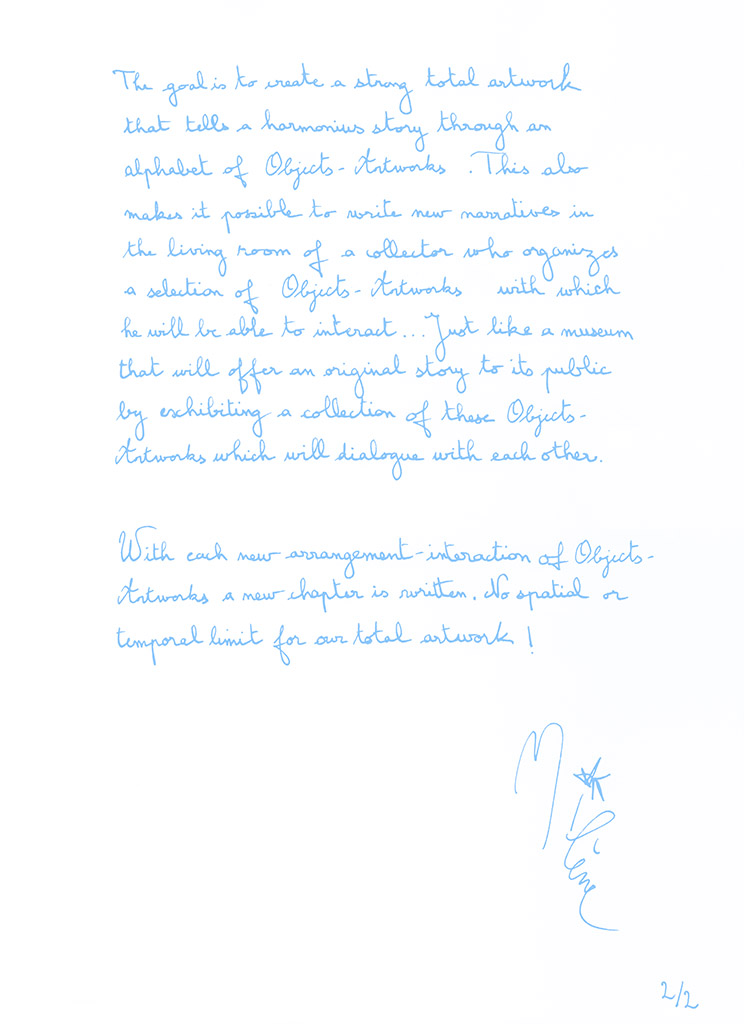 The goal is to create a strong total artwork
that tells a harmonius story through an
alphabet of Objects-Artworks. This also
makes it possible to write new narratives in
the living room of a collector who organizes
a selection of Objects-Artworks with which
he will be able to interact... Just like a museum
that will offer an original story to its public
by exhibiting a collection of these Objects-
Artworks which will dialogue with each other.
With each new arrangement-interaction of Objects-
Artworks a new chapter is written. No spatial or
temporal limit for our total artwork !
2/2